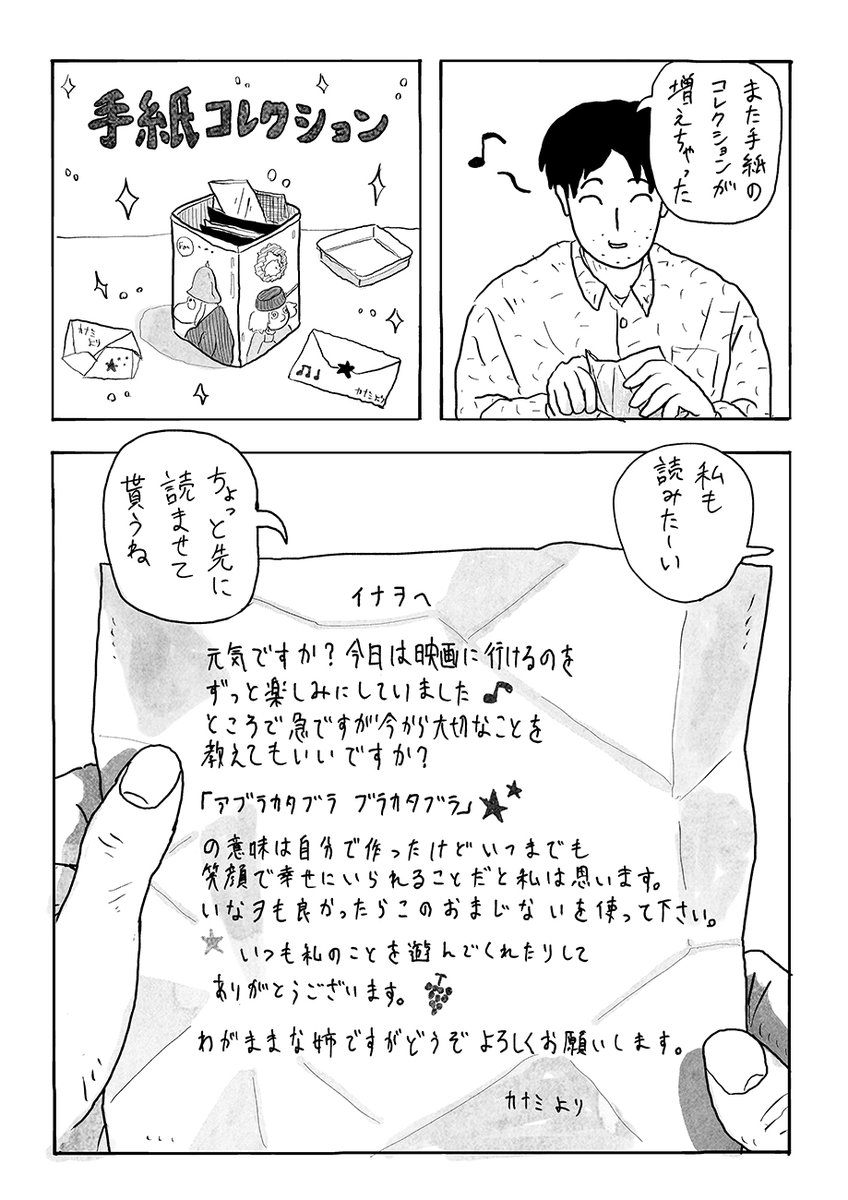 また手紙の
コレクションが
増えちゃった
手紙コレクション
カナミ
より
カナミより
私も
読みたーい
ちょっと先に
読ませて
貰うね
イナヲへ
元気ですか?今日は映画に行けるのを
ずっと楽しみにしていました
ところで急ですが今から大切なことを
教えてもいいですか?
「アブラカタブラ ブラカタブラ」
の意味は自分で作ったけどいつまでも
笑顔で幸せにいられることだと私は思います。
いなヲも良かったらこのおまじないを使って下さい。
いつも私のことを遊んでくれたりして
ありがとうございます。
わがままな姉ですがどうぞよろしくお願いします。
カナミより